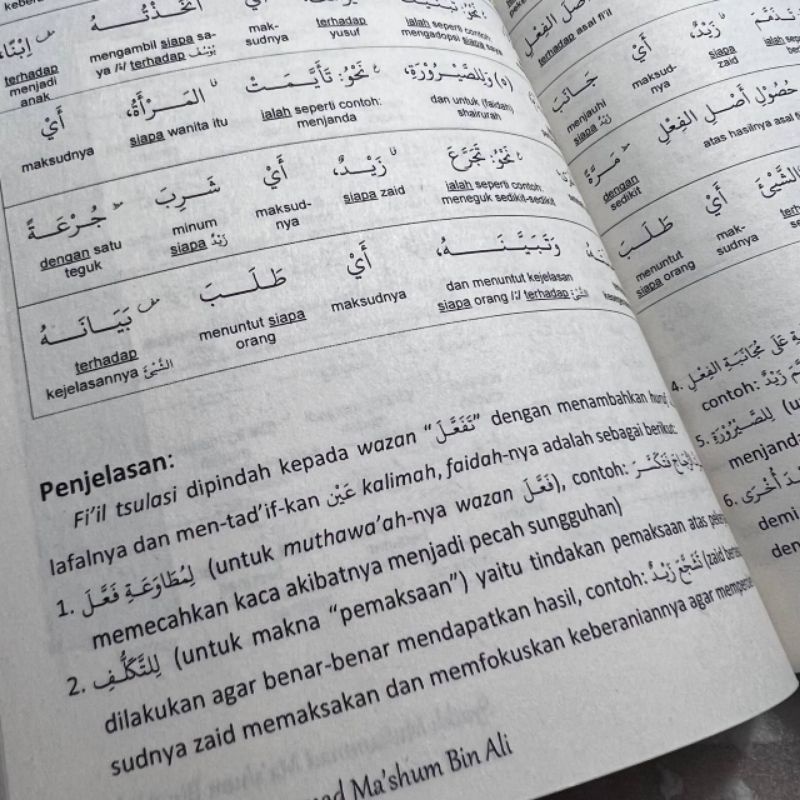 اِبْنًا،
terhadap
menjadi
anak
mengambil siapa sa-
ya /أ/ terhadap يُوْسُفَ
mak-
sudnya
terhadap
yusuf
ialah seperti contoh:
mengadopsi siapa saya
أَيْ
maksudnya
الْمَـرْأَةُ،
siapa wanita itu
نَحْوُ: تَأَيَّمَـتْ
ialah seperti contoh:
menjanda
(٥) وَلِلصَّيْرُوْرَةِ،
dan untuk (faidah)
shairurah
جُـرْعَـةً
dengan satu
teguk
شَـرِبَ
minum
siapa زَيْدٌ
أَيْ
maksud-
nya
زَيْـدٌ،
siapa zaid
نَحْوُ: تَجَرَّعَ
ialah seperti contoh:
meneguk sedikit-sedikit
بَيَـانَـهُ
terhadap
kejelasannya الشَّيْءِ
طَلَـبَ
menuntut siapa
orang
أَيْ
maksudnya
وَتَبَيَّنَـهُ،
dan menuntut kejelasan
siapa orang /أ/ terhadap الشَّيْءِ
Penjelasan:
Fi'il tsulasi dipindah kepada wazan "تَفَعَّلَ" dengan menambahkan huruf
lafalnya dan men-tad'if-kan عَيْن kalimah, faidah-nya adalah sebagai berikut:
1. لِمُطَاوَعَةِ فَعَّلَ (untuk muthawa'ah-nya wazan فَعَّلَ), contoh:
memecahkan kaca akibatnya menjadi pecah sungguhan)
2. لِلتَّكَلُّفِ (untuk makna "pemaksaan") yaitu tindakan pemaksaan atas
dilakukan agar benar-benar mendapatkan hasil, contoh: تَشَجَّعَ زَيْدٌ (zaid
sudnya zaid memaksakan dan memfokuskan keberaniannya agar
Ma'shum Bin Ali
أَصْلِ الْفِعْلِ
terhadap asal fi'il
جَـانَبَ
menjauhi
siapa زَيْدٌ
أَيْ
maksud-
nya
زَيْدٌ،
siapa
zaid
ialah
مَـرَّةً
dengan
sedikit
حُصُوْلِ أَصْلِ الْفِعْلِ
atas hasilnya asal
طَلَـبَ
menuntut
siapa orang
أَيْ
mak-
sudnya
الشَّيْئَ
4. عَلَى مُجَانَبَةِ الْفِعْلِ
contoh: زَيْدٌ
5. لِلصَّيْرُوْرَةِ
menjanda
6. أُخْرَى
demi